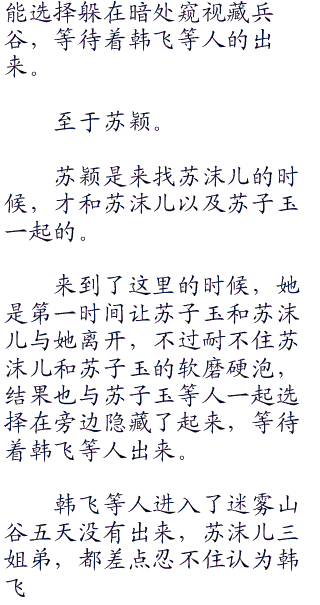 能选择躲在暗处窥视藏兵
谷，等待着韩飞等人的出
来。
至于苏颖。
苏颖是来找苏沫儿的时
候，才和苏沫儿以及苏子玉
一起的。
来到了这里的时候，她
是第一时间让苏子玉和苏沫
儿与她离开，不过耐不住苏
沫儿和苏子玉的软磨硬泡，
结果也与苏子玉等人一起选
择在旁边隐藏了起来，等待
着韩飞等人出来。
韩飞等人进入了迷雾山
谷五天没有出来，苏沫儿三
姐弟，都差点忍不住认为韩
飞